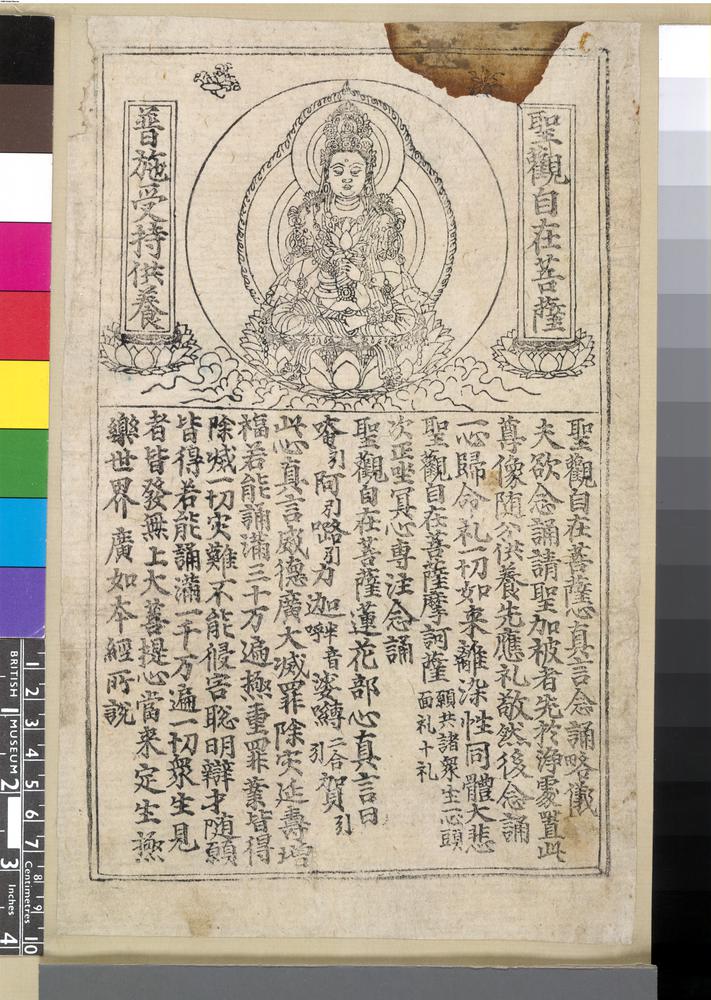 聖觀自在菩薩
普施受持供養
聖觀自在菩薩心真言念誦略儀
夫欲念誦請聖加被者先於淨處置此
尊像随分供養先應礼敬然後念誦
一心歸命礼一切如來離染性同體大悲
聖觀自在菩薩摩訶薩 願共諸衆生一心頭
面礼十礼
次正坐冥心專注念誦
聖觀自在菩薩蓮花部心真言曰
唵引阿引嚕引力迦半音娑嚩二合引賀引
此心真言威德廣大滅罪除灾延壽增
福若能誦滿三十万遍極重罪業皆得
除滅一切灾難不能侵害聡明辯才随願
皆得若能誦滿一千万遍一切衆生見
者皆發無上大菩提心當來定生極
樂世界廣如本經所說
BRITISH MUSEUM
1 2 3 4 5 6 7 8 9 10
Centimetres
1 2 3 4
Inches